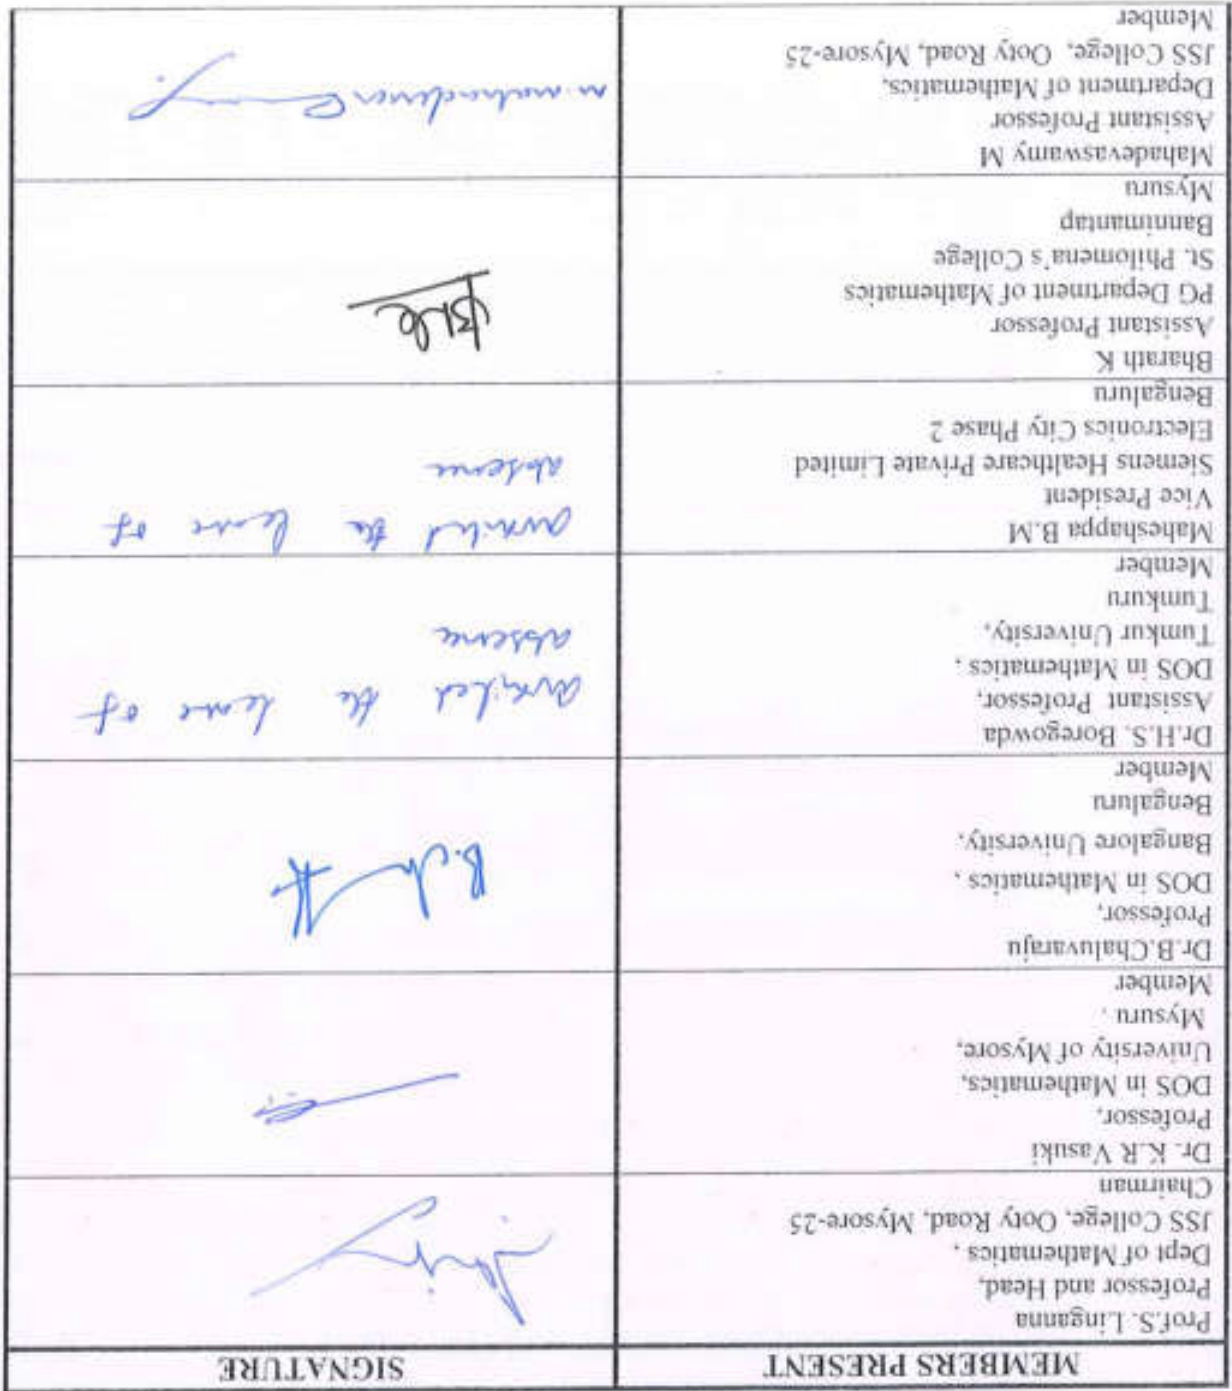 MEMBERS PRESENT SIGNATURE
Prof.S. Linganna
Professor and Head,
Dept of Mathematics ,
JSS College, Ooty Road, Mysore-25
Chairman
Dr. K.R Vasuki
Professor,
DOS in Mathematics,
University of Mysore,
Mysuru .
Member
Dr.B.Chaluvaraju
Professor,
DOS in Mathematics ,
Bangalore University,
Bengaluru
Member
B.Ch
Dr.H.S. Boregowda
Assistant Professor,
DOS in Mathematics ,
Tumkur University,
Tumkuru
Member
availed the leave of
absence
Maheshappa B.M
Vice President
Siemens Healthcare Private Limited
Electronics City Phase 2
Bengaluru
availed the leave of
absence
Bharath K
Assistant Professor
PG Department of Mathematics
St. Philomena's College
Bannimantap
Mysuru
Mahadevaswamy M
Assistant Professor
Department of Mathematics,
JSS College, Ooty Road, Mysore-25
Member